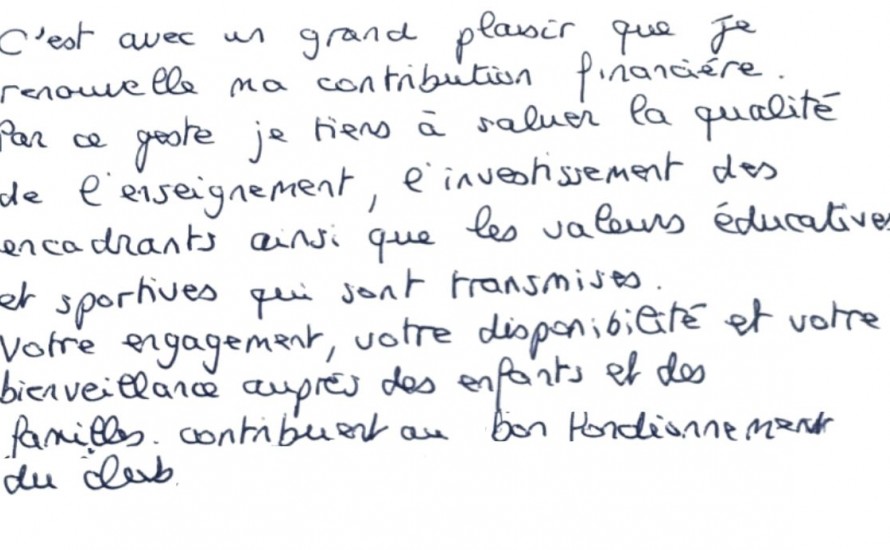 C'est avec un grand plaisir que je
renouvelle ma contribution financière.
Par ce geste je tiens à saluer la qualité
de l'enseignement, l'investissement des
encadrants ainsi que les valeurs éducatives
et sportives qui sont transmises.
Votre engagement, votre disponibilité et votre
bienveillance auprès des enfants et des
familles. contribuent au bon fonctionnement
du club.